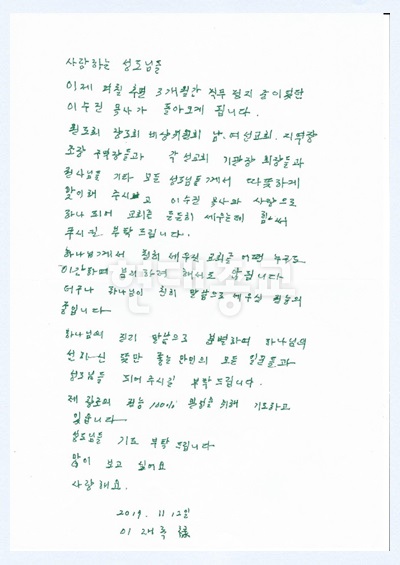 사랑하는 성도님들
이제 며칠 후면 3개월간 직무 정지 중이었던
이수진 목사가 돌아오게 됩니다.
원로회 장로회 비상위원회 남,여선교회. 지역장
조장 구역장들과 각 선교회 기관장 회장들과
천사님들 기타 모든 성도님들께서 따뜻하게
맞이해 주시고 이수진 목사와 사랑으로
하나 되어 교회를 든든히 세우는데 힘써
주시길 부탁 드립니다.
하나님께서 친히 세우신 교회를 어떤 누구도
이간하며 해서도 안됩니다
더구나 하나님이 친히 말씀으로 세우신
줄입니다
하나님의 진리 말씀으로 분별하여 하나님의
선하신 뜻만 좇는 만민의 모든 일꾼들과
성도님들 되어 주시길 부탁 드립니다.
제 100% 위해 기도하고
있습니다
성도님들 기도 부탁 드립니다
많이 보고 싶어요
사랑해요.
2019. 11 12일
이재록
현대종교